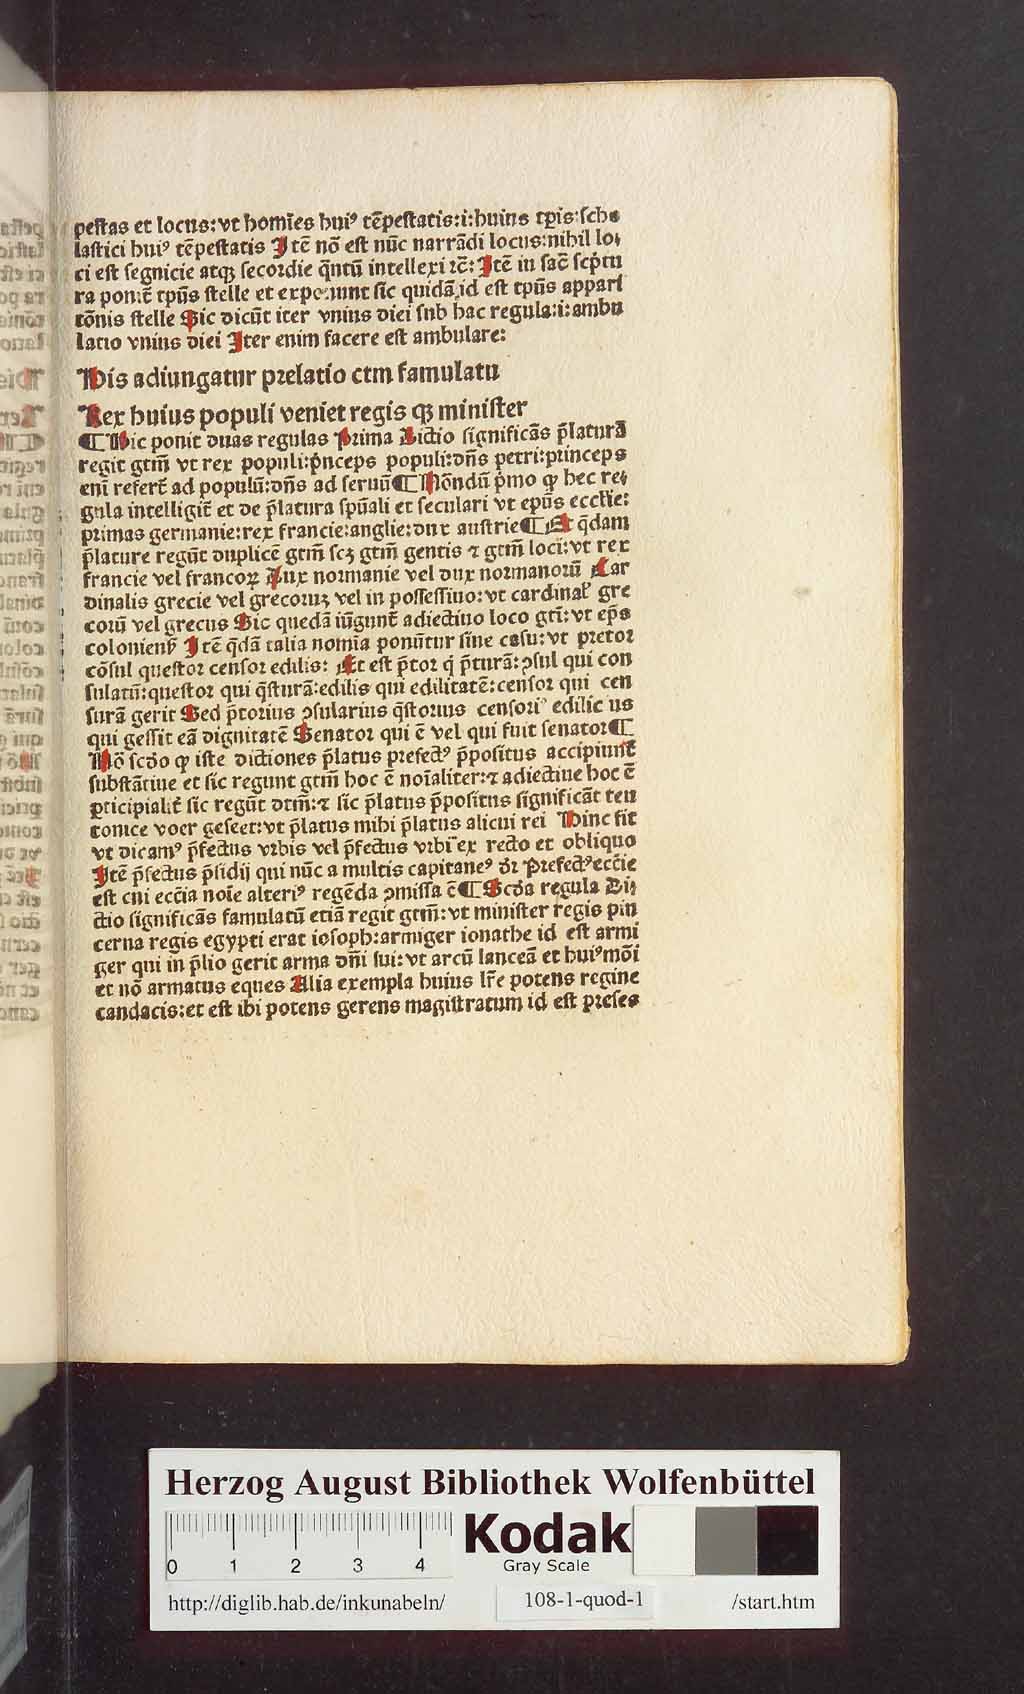 pestas et locus: vt homīes huiꝰ tēpestatis: i: huius tꝑis: scho
lastici huiꝰ tēpestatis Itē nō est nūc narrādi locus: nihil lo⸗
ci est segnicie atqꝫ secordie q̄ntū intellexi ⁊c̄: Itē in sac̄ scp̄tu
ra ponit̄ tp̄us stelle et exponunt sic quidā id est tp̄us appari
tōnis stelle Sic dicūt iter vnius diei sub hac regula: i: ambu
latio vnius diei Iter enim facere est ambulare:
His adiungatur prelatio ctm famulatu
Rex huius populi veniet regis qꝫ minister
¶ Hic ponit duas regulas Prima Dictio significās p̄laturā
regit gtm̄ vt rex populi: p̄nceps populi: dn̄s petri: princeps
eni refert̄ ad populū: dn̄s ad seruū ¶ Nōndū p̄mo ꝙ hec re⸗
gula intelligit̄ et de p̄latura spūali et seculari vt ep̄us ecclie:
primas germanie: rex francie: anglie: dux austrie ¶ Et q̄dam
p̄lature regūt duplicē gtm̄ scꝫ gtm̄ gentis ⁊ gtm̄ loci: vt rex
francie vel francoꝝ Dux normanie vel dux normanorū Car
dinalis grecie vel grecoruꝫ vel in possessiuo: vt cardinal̓ gre
corū vel grecus Sic quedā iūgunt̄ adiectiuo loco gti: vt ep̄s
coloniens̓ Itē q̄dā talia nomīa ponūtur sine casu: vt pretor
cōsul questor censor edilis: Et est p̄tor q̇ p̄turā: ꝯsul qui con
sulatū: questor qui q̄sturā: edilis qui edilitatē: censor qui cen
surā gerit Sed p̄torius ꝯsularius q̄storius censoriꝰ edilicius
qui gessit eā dignitatē Senator qui ē vel qui fuit senator ¶
Nō scdo ꝙ iste dictiones p̄latus prefectꝰ p̄positus accipiunt̄
substātiue et sic regunt gtm̄ hoc ē noīaliter: ⁊ adiectiue hoc ē
ꝑticipialit̄ sic regūt dtm̄: ⁊ sic p̄latus p̄positus significāt teu
tonice voer geseet: vt p̄latus mihi p̄latus alicui rei Hinc fit
vt dicamꝰ p̄fectus vrbis vel p̄fectus vrbi ex recto et obliquo
Itē p̄fectus p̄sidij qui nūc a multis capitaneꝰ dr̄ Prefectꝰ eccīe
est cui eccīa noīe alteriꝰ regēda ꝯmissa ē ¶ Scda regula Di⸗
ctio significās famulatū etiā regit gtm̄: vt minister regis pin
cerna regis egypti erat ioseph: armiger ionathe id est armi
ger qui in p̄lio gerit arma dn̄i sui: vt arcū lanceā et huiꝰmōi
et nō armatus eques Alia exempla huius lr̄e potens regine
candacis: et est ibi potens gerens magistratum id est preses
Herzog August Bibliothek Wolfenbüttel
0 1 2 3 4
Kodak
Gray Scale
http://diglib.hab.de/inkunabeln/ 108-1-quod-1 /start.htm